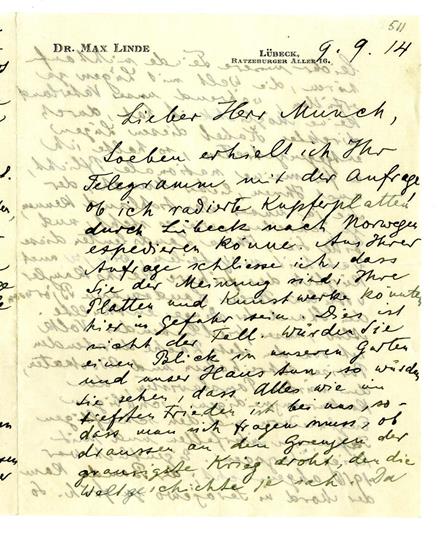 511
DR. MAX LINDE
LÜBECK,
RATZEBURGER ALLEE 16.
9. 9. 14
Lieber Herr Munch,
Soeben erhielt ich Ihr
Telegramm mit der Anfrage,
ob ich radierte Kupferplatten
durch Lübeck nach Norwegen
expedieren könne. Aus Ihrer
Anfrage schliesse ich, dass
Sie der Meinung sind, Ihre
Platten und Kunstwerke könnten
hier in Gefahr sein. Dies ist
nicht der Fall. Würden Sie
einen Blick in unseren Garten
und unser Haus tun, so würden
Sie sehen, dass Alles wie im
tiefsten Frieden ist bei uns, so-
dass man sich fragen muss, ob
draussen an den Grenzen der
grausigste Krieg droht, den die
Weltgeschichte je sah. Da